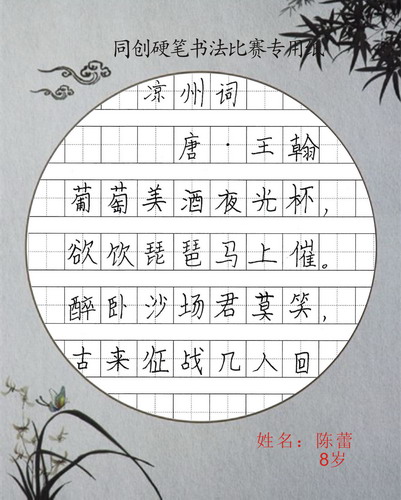 同创硬笔书法比赛专用纸
凉州词
唐·王翰
葡萄美酒夜光杯，
欲饮琵琶马上催。
醉卧沙场君莫笑，
古来征战几人回
姓名：陈蕾
8岁